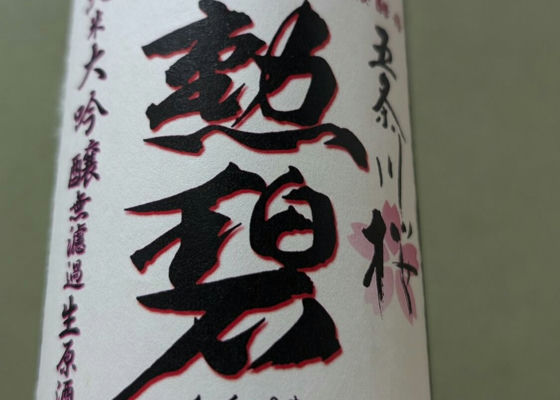 五条川桜
勲碧
純米大吟醸無濾過生原酒